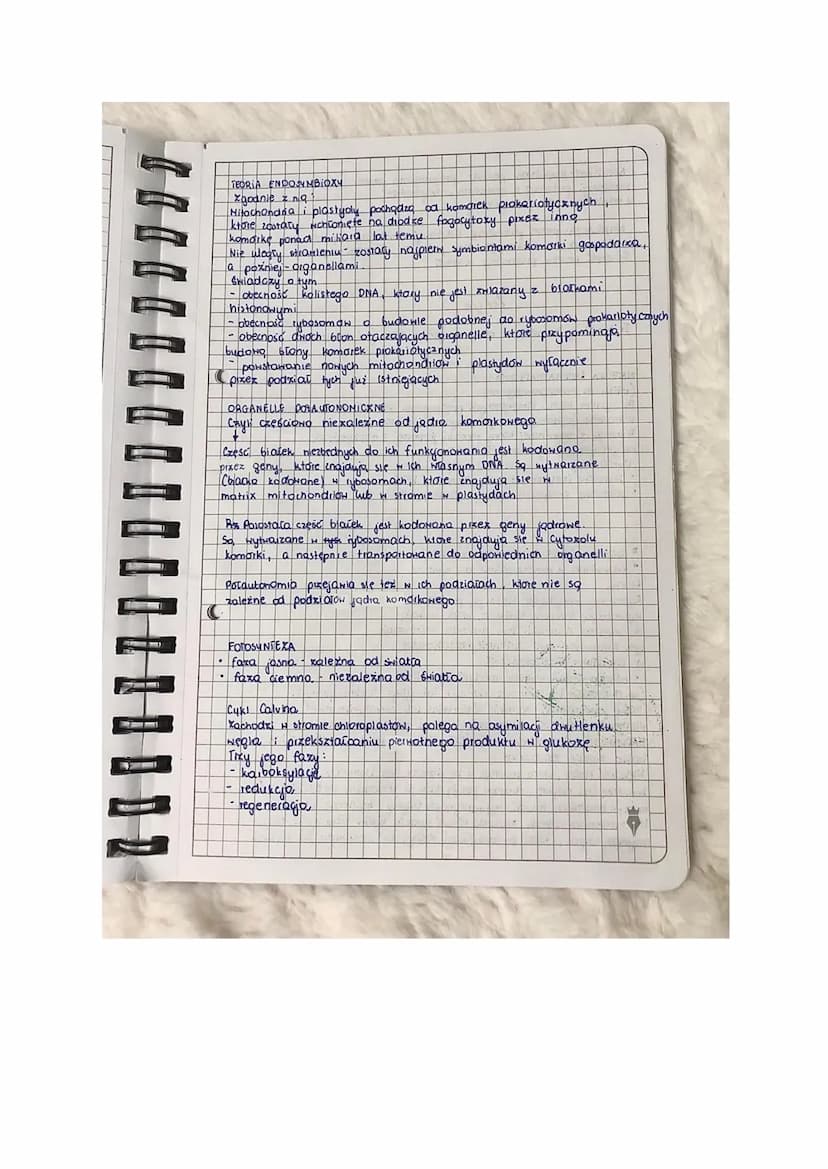 TEORIA ENDOSYMBIOZY
Zgodnie z nią:
Mitochondria i plastydy pochodzą od komórek prokariotycznych,
które zostały wchłonięte na drodze fagocytozy przez inną
komórkę ponad miliard lat temu.
Nie uległy strawieniu - zostały najpierw symbiontami komórki gospodarza,
a później - organellami.
Świadczy o tym
- obecność kolistego DNA, który nie jest związany z białkami
histonowymi
- obecność rybosomów o budowie podobnej do rybosomów prokariotycznych
- obecność dwóch błon otaczających organelle, które przypominają
budową błony komórek prokariotycznych
- powstawanie nowych mitochondriów i plastydów wyłącznie
przez podział tych już istniejących
ORGANELLE PÓŁAUTONOMICZNE
Czyli częściowo niezależne od jądra komórkowego
↓
Część białek niezbędnych do ich funkcjonowania jest kodowana
przez geny, które znajdują się w ich własnym DNA. Są wytwarzane
(białka kodowane) w rybosomach, które znajdują się w
matrix mitochondriów lub w stromie w plastydach
Pozostała część białek jest kodowana przez geny jądrowe.
Są wytwarzane w rybosomach, które znajdują się w cytozolu
komórki, a następnie transportowane do odpowiednich organelli
Półautonomia przejawia się też w ich podziałach, które nie są
zależne od podziałów jądra komórkowego
FOTOSYNTEZA
• faza jasna - zależna od światła
• faza ciemna - niezależna od światła
Cykl Calvina
Zachodzi w stromie chloroplastów, polega na asymilacji dwutlenku
węgla i przekształcaniu pierwotnego produktu w glukozę
Trzy jego fazy:
- karboksylacja
- redukcja
- regeneracja